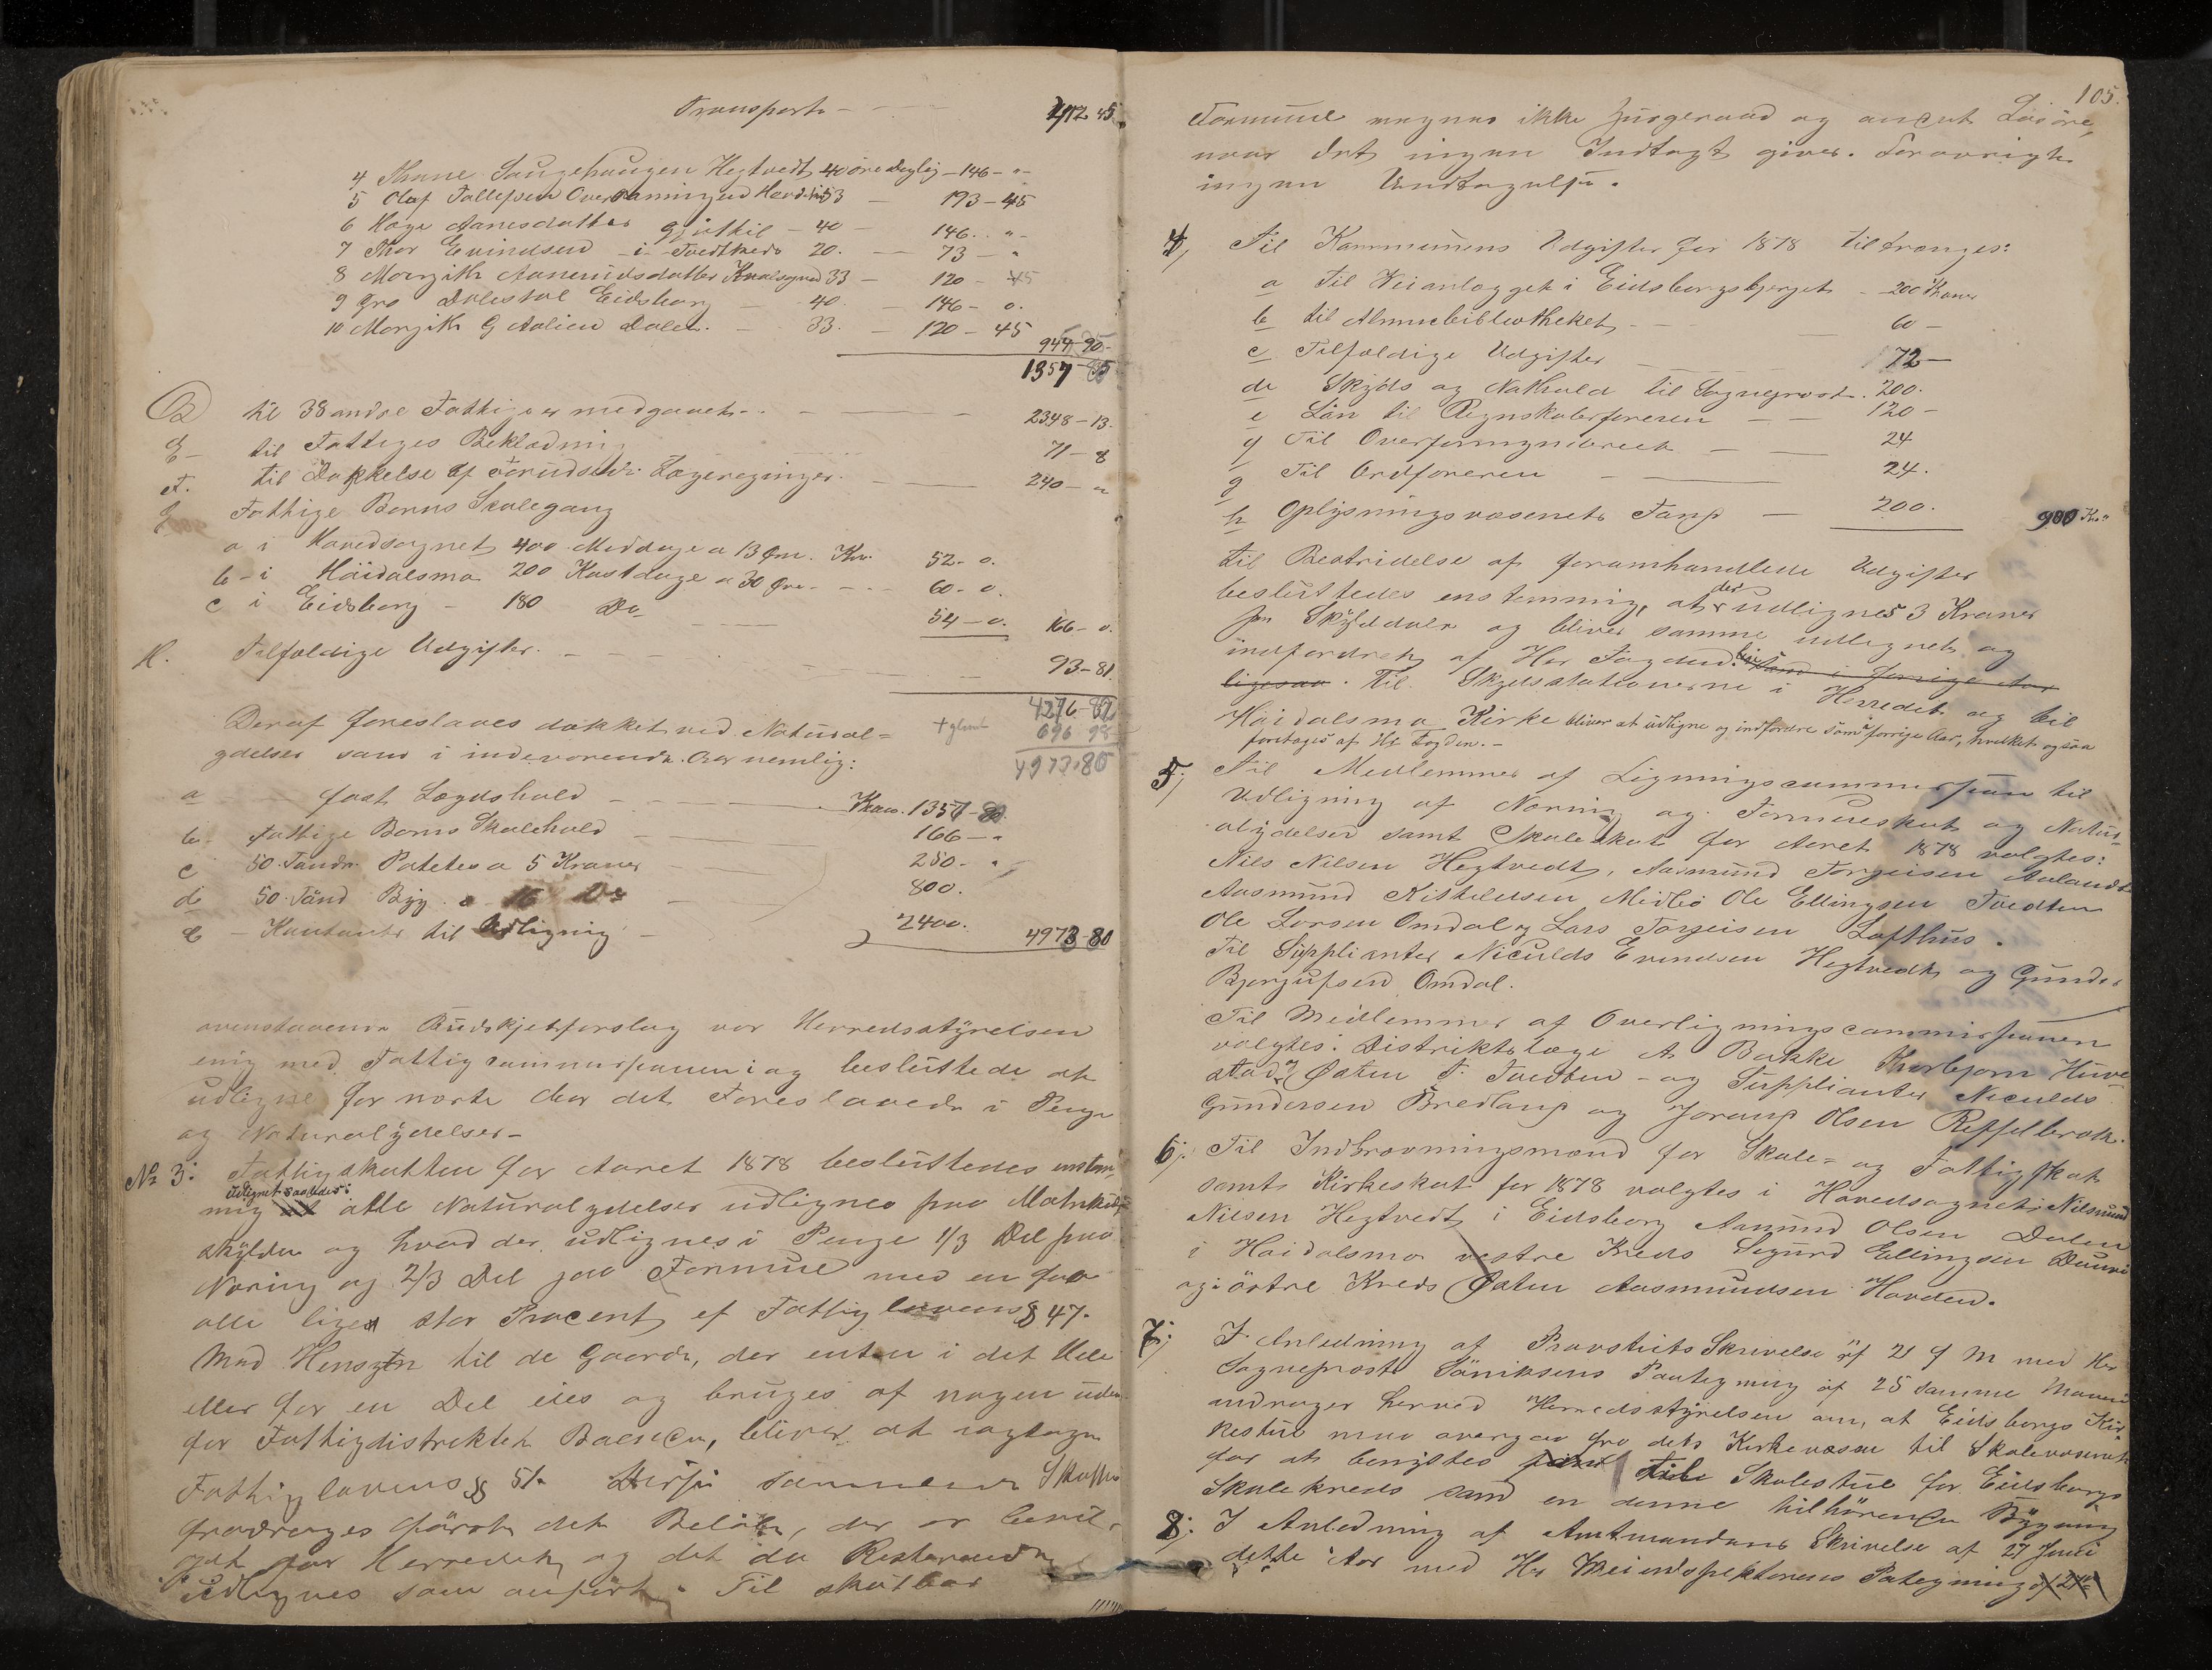 Transport 412 45
4 Anne Haugehaugen Hegtvedt 40 øre Daglig - 146 - "
5 Olaf Tallefsen 53 - 193 - 45
6 Hæge Aanesdatter - 40 - 146 - "
7 Thor Evindsen i Tvedtkreds 20. - 73 - "
8 Margith Aanundsdatter 33 - 120 - 45
9 Gro Dalestøl Eidsborg - 40. - 146 - o.
10 Margith G Aalien Dalen. - 33. - 120 - 45
944-90
1357-35
til 38 andre Fattige er medgaaet - 2348-13.
E - til Fattiges Beklædning 71-8
F. til Dækkelse af Lægeregninger. 240-"
G Fattige Børns Skolegang
a i Hovedsognet 400 Middage a 13 Øre. Kr. 52-o.
b - i Høidalsmo 200 Kostdage a 30 Øre 60-o.
c i Eidsborg - 180 Do 54-o. 166-o.
H. Tilfældige Udgifter. 93-81.
4276-82
Deraf foreslaaes dækket ved Natural= + 696 98
ydelser som i indeværende Aar nemlig: 4973.80
a fast Lægdshold Kroner. 1357-80
b fattige Børns Skolehold 166-"
c 50 Tønder Poteter a 5 Kroner 250-"
d 50 Tønd Byg a 16 Do 800.
e - Kontant til Udligning 2400. 4973-80
ovenstaaende Budskjetforslag var Herredsstyrelsen
enig med Fattigcommissionen i og besluttede at
udligne for næste Aar det Foreslaaede i Penge
og Naturalydelser-
No 3: Fattigskatten for Aaret 1878 besluttedes enstem
mig udlignet saaledes: alle Naturalydelser udlignes paa Matrikul
skylden og hvad der udlignes i Penge 1/3 Del paa
Næring og 2/3 Del paa Formue med en for
alle liges stor Procent ef Fattiglovens § 47.
Med Hensyn til de Gaarde, der enten i det Hele
eller for en Del eies og bruges af nogen uden
for Fattigdistriktet Boende, bliver at iagttage
Fattiglovens § 51. Skatter
fradrages først det Beløb, der er bevil-
get for Herredet og det da Resterende
udlignes som anført. Til skatbar
105.
Formue regnes ikke Husgeraad og andet Løsøre,
naar det ingen Indtægt giver. Forøvrigt
ingen Undtagelse.
4, Til Kommunens Udgifter for 1878 tiltrænges:
a Til Veianlægget i Eidsborgsbjerget - 200 Kroner
b til Almuebibliotheket 60 -
c Tilfældige Udgifter 72 -
d Skyds og Nathold til Sogneprest. 200.
e Løn til Regnskabsføreren 120 -
f Til Overformynderiet 24
g Til Ordføreren 24.
h Oplysningsvæsenets Fond 200. 900 Kr."
til Bestridelse af foranhandlede Udgifter
besluttedes enstemmig, at der udlignes 3 Kroner
pr Skylddaler og bliver samme udlignet og
indfordret af Her Fogden. som i forrige Aar
ligesaa. Til Skydsstationerne i Herredet og til
Høidalsmo Kirke bliver at udligne og indfordre som forrige Aar, hvilket ogsaa
foretages af Hr Fogden. -
5; Til Medlemmer af Ligningscommissionen til
Udligning af Næring og Formueskat og Natur-
alydelser samt Skoleskat for Aaret 1878 valgtes:
Nils Nilsen Hegtvedt, Aasmund Torgeisen Aalandt
Aasmund Kittelsen Midbø Ole Ellingsen Tvedten
Ole Larsen Omdal og Lars Torgeisen Lofthus.
Til Supplianter Niculds Evendsen Hegtvedt og Gunder
Bjørgufsen Omdal.
Til Medlemmer af Overligningscommissionen
valgtes: Distriktslæge A Bakke Thorbjørn Huve
stad? Østen T. Tvedten - og Supplianter Niculds
Gundersen Bredland og Jorand Olsen Reffelbrok.
6; Til Indkrævningsmænd for Skole- og Fattigskat
samt Kirkeskat for 1878 valgtes i Hovedsognet: Nils
Nilsen Hegtvedt i Eidsborg Aanund Olsen Dalen
i Høidalsmo vestre Kreds Sigurd Ellingsen
og i østre Kreds Østen Aasmundsen Hovden.
7; I Anledning af Provstiets Skrivelse af 21 f M med Her
Sogneprost Søniksens Paategning af 25 samme Maaned
andrager herved Herredsstyrelsen om, at Eidsborgs Kir
kestue maa overgaa fra dets Kirkevæsen til Skolevæsenet
for at benyttes til Skolestue for Eidsborgs
Skolekreds som en denne tilhørende Bygning
8; I Anledning af Amtmandens Skrivelse af 27 Juni
dette Aar med Hr Veiindspektørens Pategning af